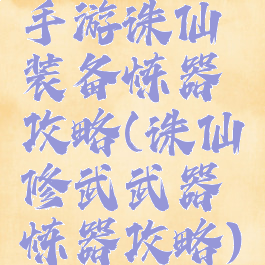 手游诛仙
装备炼器
攻略(诛仙
修武武器
炼器攻略)